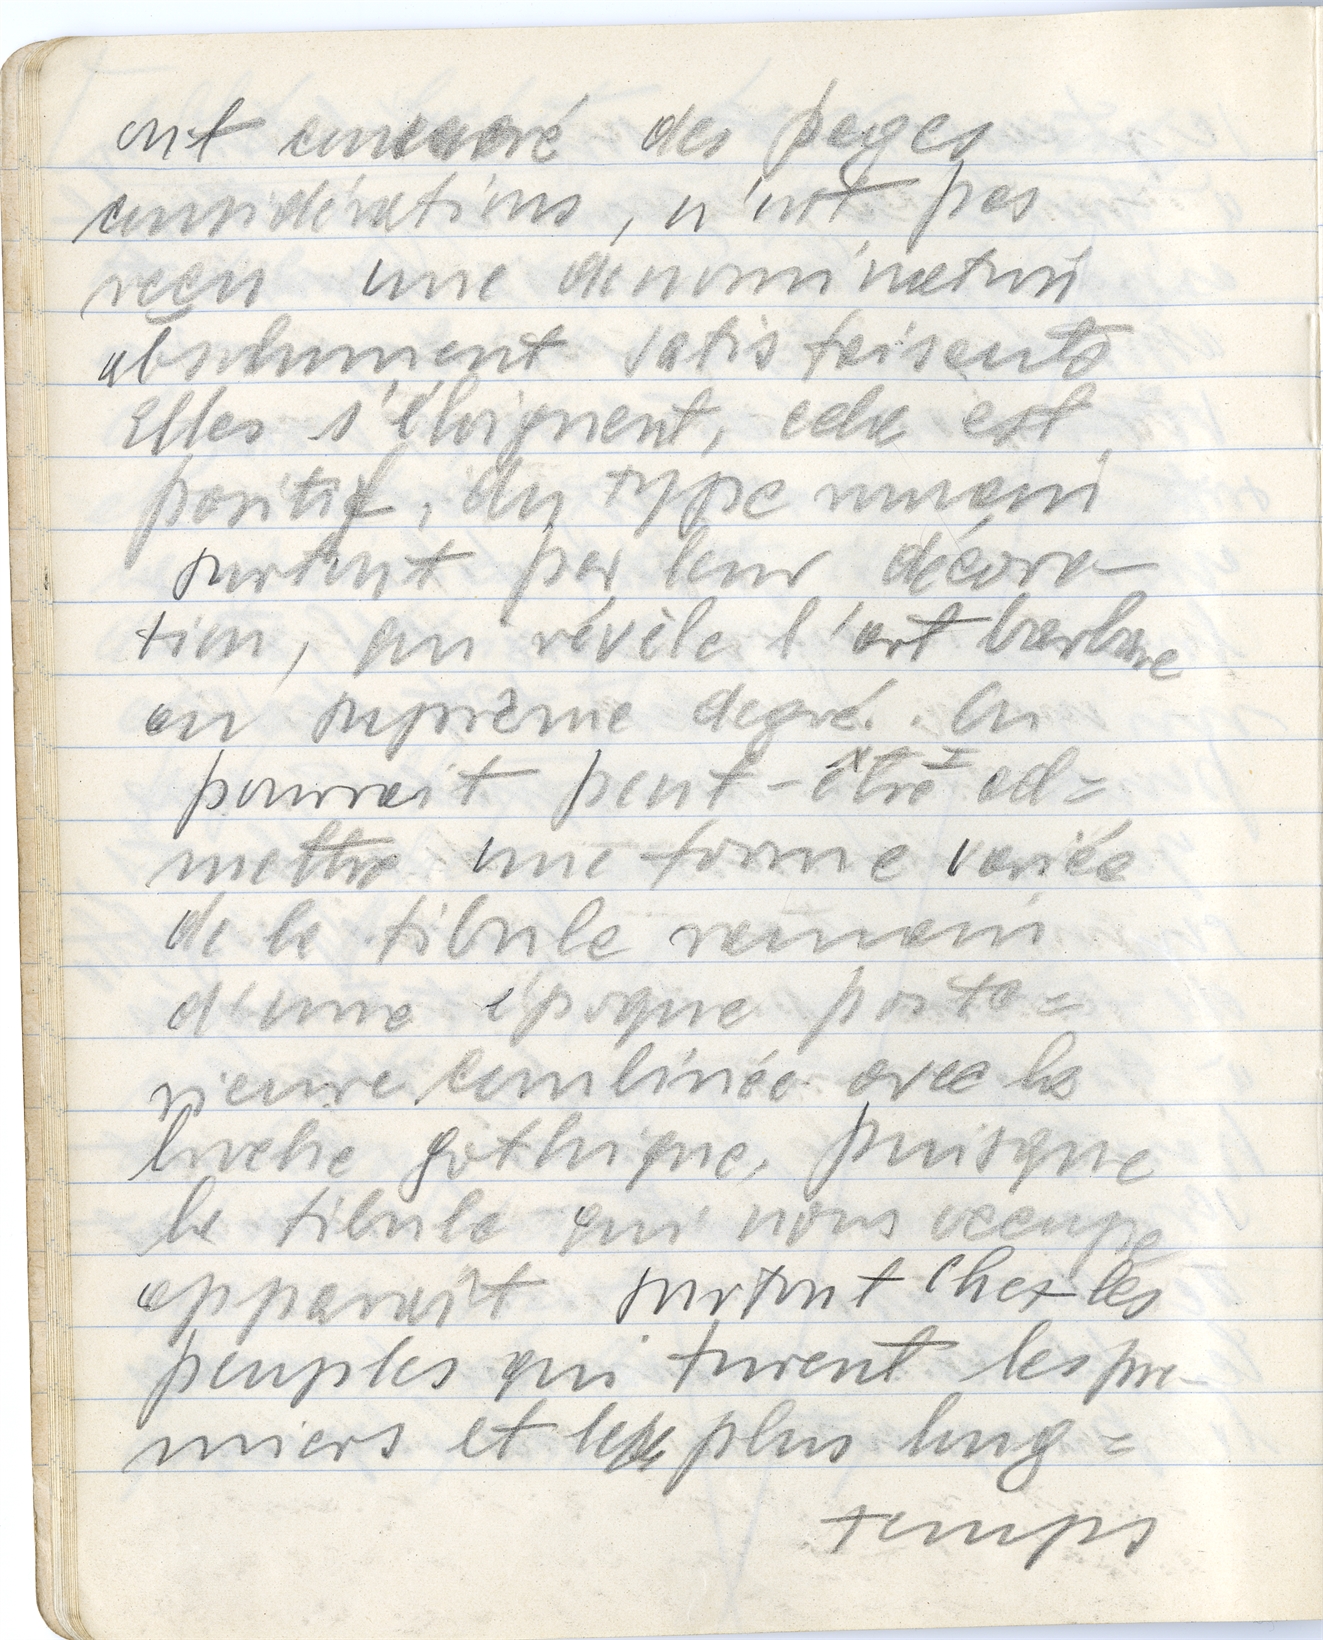 ont consacré des pages
considérations, n'ont pas
reçu une dénomination
absolument satisfaisants
Elles s'éloignent, cela est
positif, du type romain
surtout par leur décora-
tion, qui révèle l'art barbare
au suprème degré. On
pourrait peut-être ad=
mettre une forme variée
de la fibule romain
d'une époque posté=
rieure combinée avec la
boucle gothique, puisque
la fibule qui nous occupe
apparaît surtout chez les
peuples qui furent les pre-
miers et le plus long=
temps